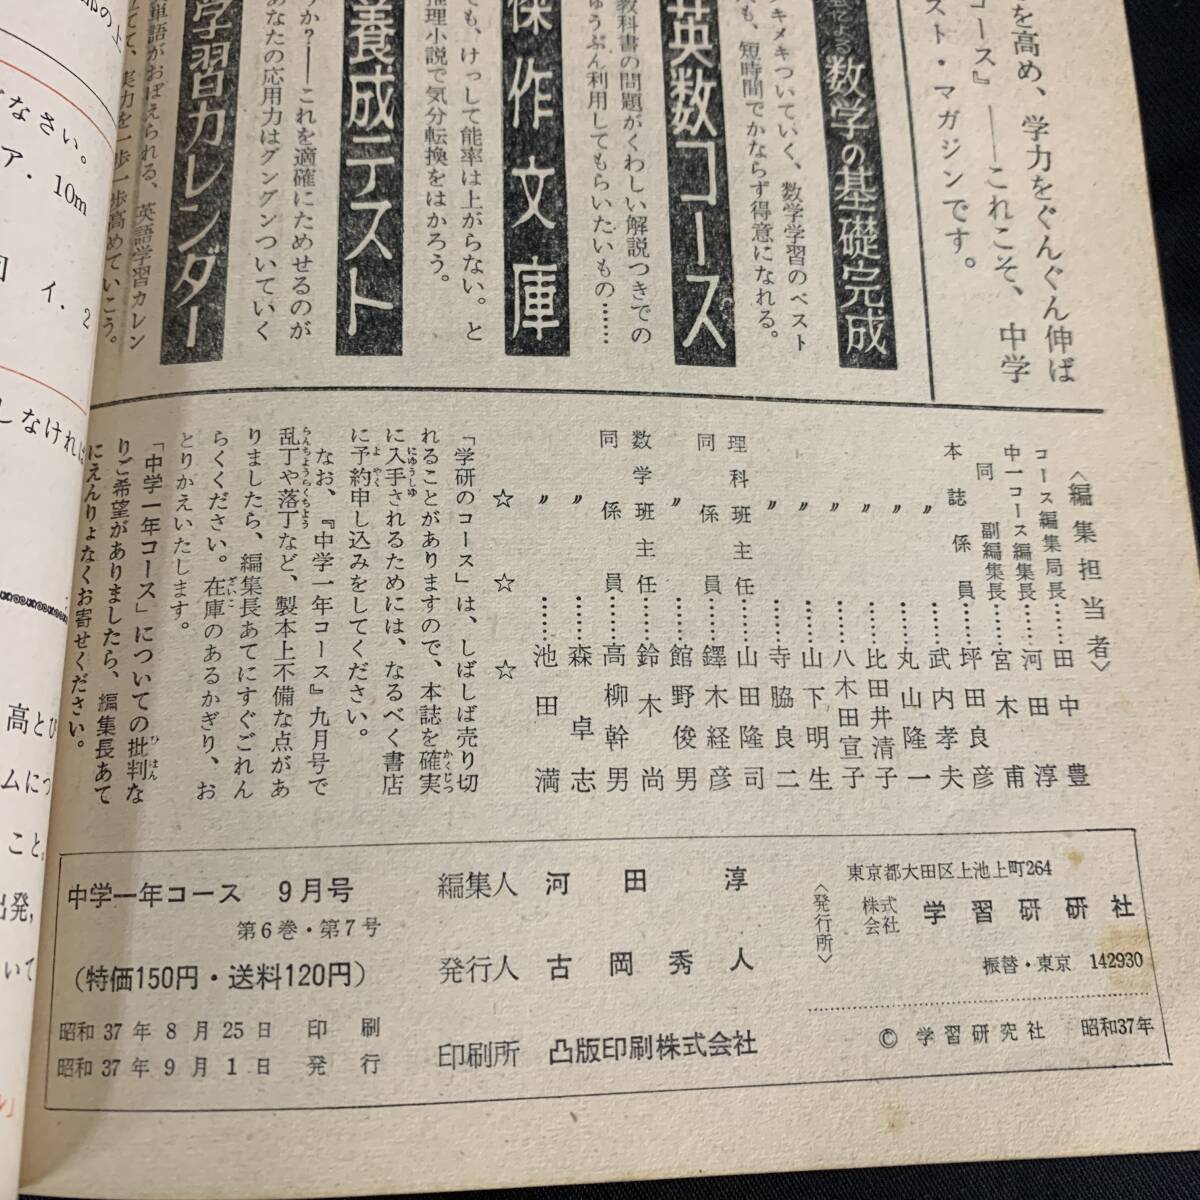 を高め、学力をぐんぐん伸ば
コース』――これこそ、中学
スト・マガジンです。
数学の基礎完成
メキメキついていく、数学学習のベスト
も、短時間でかならず得意になれる。
英数コース
教科書の問題がくわしい解説つきでの
ゅうぶん利用してもらいたいもの……
傑作文庫
でも、けっして能率は上がらない。と
推理小説で気分転換をはかろう。
養成テスト
うか？――これを適確にためせるのが
あなたの応用力はグングンついていく
学習カレンダー
単語がおぼえられる、英語学習カレン
てて、実力を一歩一歩高めていこう。
〈編集担当者〉
コース編集局長……田中豊
中一コース編集長……河田淳
同副編集長……宮木甫
本誌係員……坪田良彦
〃……武内孝夫
〃……丸山隆一
〃……比田井清子
〃……八木田宣子
〃……山下明生
〃……寺脇良二
理科班主任……山田隆司
同係員……鐸木経彦
〃……館野俊男
数学班主任……鈴木尚
同係員……高柳幹男
〃……森卓志
〃……池田満
☆☆☆
「学研のコース」は、しばしば売り切
れることがありますので、本誌を確実
に入手されるためには、なるべく書店
に予約申し込みをしてください。
なお、『中学一年コース』九月号で
乱丁や落丁など、製本上不備な点があ
りましたら、編集長あてにすぐごれん
らくください。在庫のあるかぎり、お
とりかえいたします。
「中学一年コース」についての批判な
りご希望がありましたら、編集長あて
にえんりょなくお寄せください。
中学一年コース 9月号
第6巻・第7号
(特価150円・送料120円)
昭和37年8月25日 印刷
昭和37年9月1日 発行
編集人 河田淳
発行人 古岡秀人
印刷所 凸版印刷株式会社
東京都大田区上池上町264
〈発行所〉
株式会社 学習研研社
振替・東京 142930
© 学習研究社 昭和37年
なさい。
ア・10m
イ．2
しなければ
高とび
ムにつ
こと。
出発，
いて